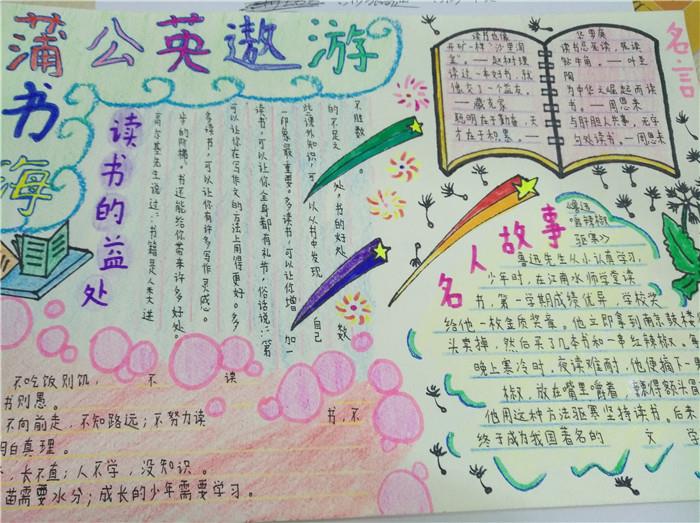 蒲公英遨游
书海
读书的益处
高尔基先生说过："书籍是人类进
步的阶梯。书还能给你带来许多好处。
多读书，可以让你有许多写作灵感。
可以让你在写作文的方法上用得更好。多
读书，可以让你全身都有礼节，俗话说："第
一印象最重要。多读书，可以让你增 加一
些课外知识，可以从书中发现 自己
的不足之处。书的好处 数
不胜数。
名言
读书也像
开矿一样"沙里淘
金"。—赵树理
读过一本好书，就
像交了一个益友。
—臧克家
聪明在于勤奋，天
才在于积累。—
华罗庚
读书忌死读，死读
钻牛角。—叶圣
陶
为中华之崛起而读
书。—周恩来
与肝胆人共事，无字
句处读书。—周恩来
名人故事
《鲁迅
嚼辣椒
驱寒》
鲁迅先生从小认真学习，
少年时，在江南水师学堂读
书，第一学期成绩优异，学校奖
给他一枚金质奖章。他立即拿到南京鼓楼
头卖掉，然后买了几本书和一串红辣椒。每
晚上寒冷时，夜读难耐，他便摘下一
椒，放在嘴里嚼着，辣得额头冒
他用这种方法驱寒坚持读书。后来
终于成为我国著名的 文 学
不吃饭则饥， 不 读
书则愚。
不向前走，不知路远；不努力读 书，不
明白真理。
，长不直；人不学，没知识。
苗需要水分；成长的少年需要学习。